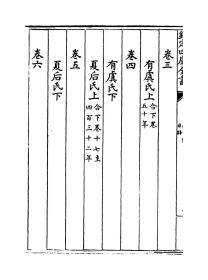 卷三
有虞氏上 合下卷
五十年
卷四
有虞氏下
夏后氏上 合下卷十七主
四百三十二年
卷五
夏后氏下
卷六